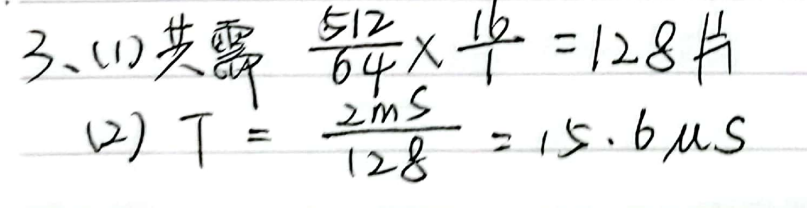 3、(1)共需 512/64 × 16/1 = 128片
(2) T = 2ms/128 = 15.6μs